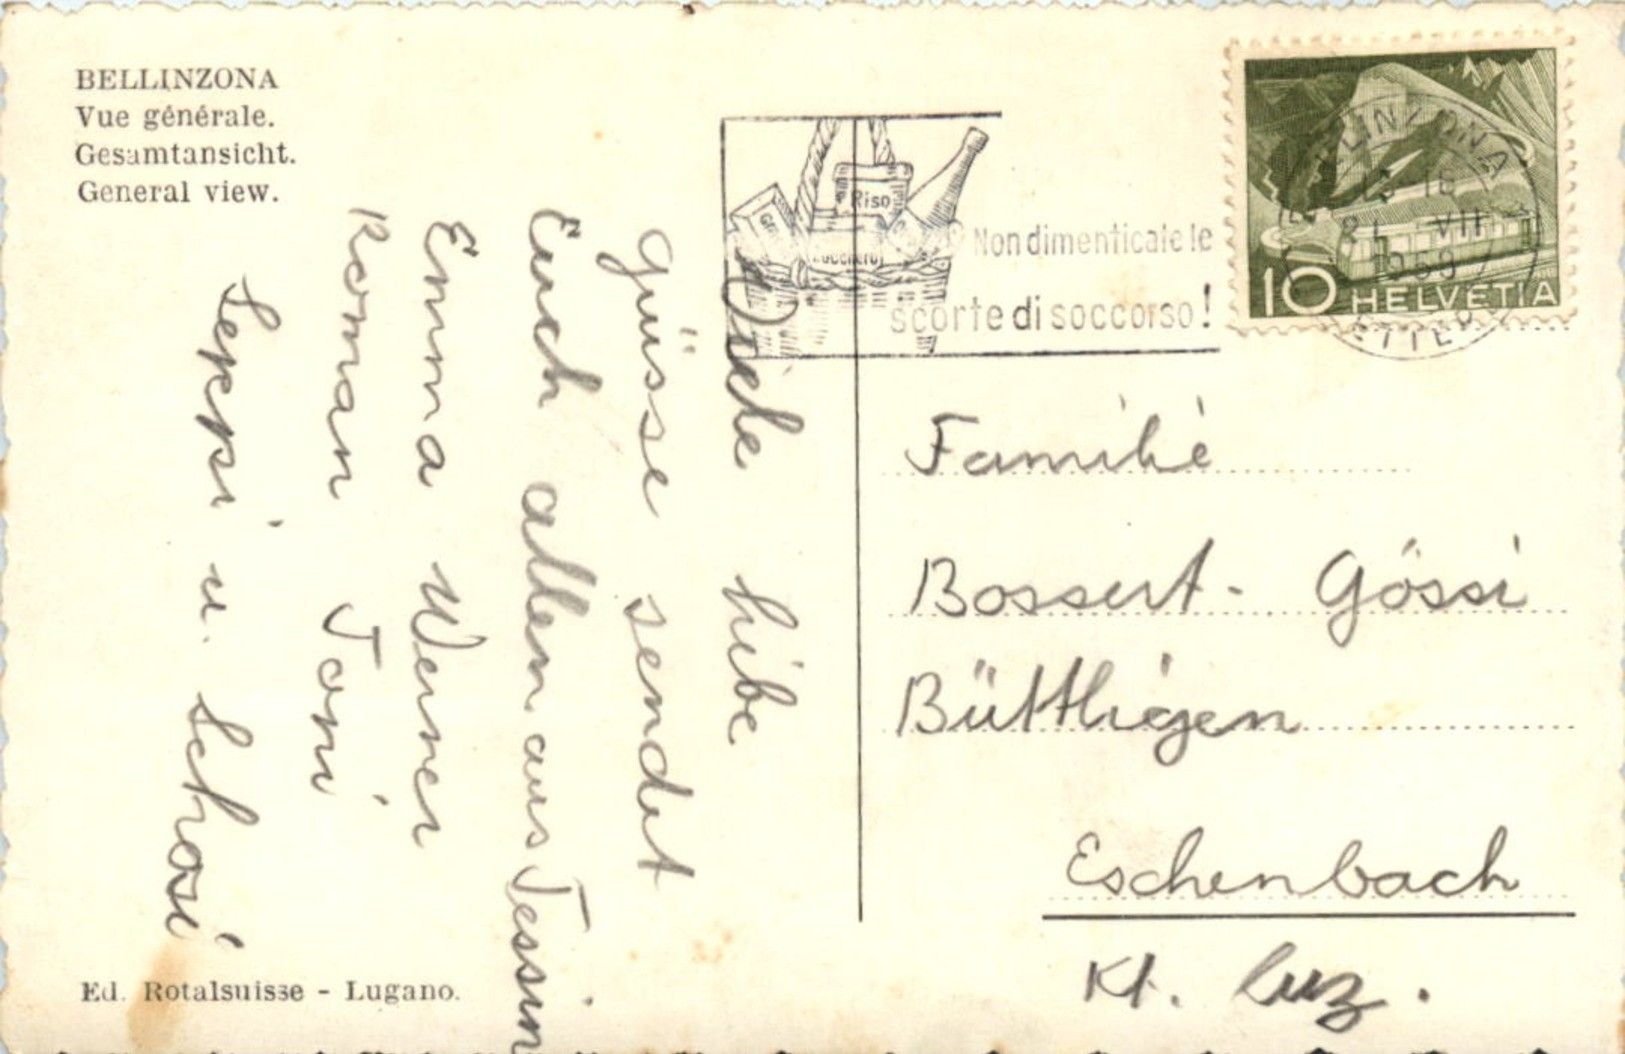 BELLINZONA
Vue générale.
Gesamtansicht.
General view.
Viele liebe
Grüsse sendet
Euch allen aus Tessin
Emma Werner
Roman Toni
Seppi u. Schosi
Ed. Rotalsuisse - Lugano.
Riso
Non dimenticate le
scorte di soccorso!
BELLINZONA
21 VII
1959
10 HELVETIA
Familie
Bossert - Gössi
Büttligen
Eschenbach
Kt. Luz.